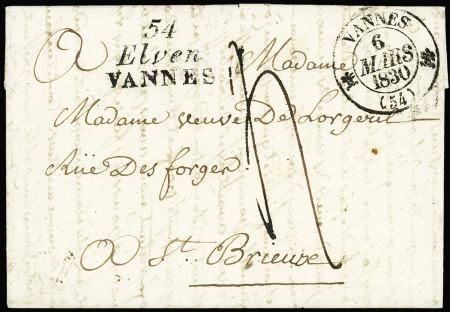 54
Elven
VANNES
VANNES
6
MARS
1830
(54)
A Madame
Madame veuve De Lorgeril
Rüe Des forges
A St. Brieuxe